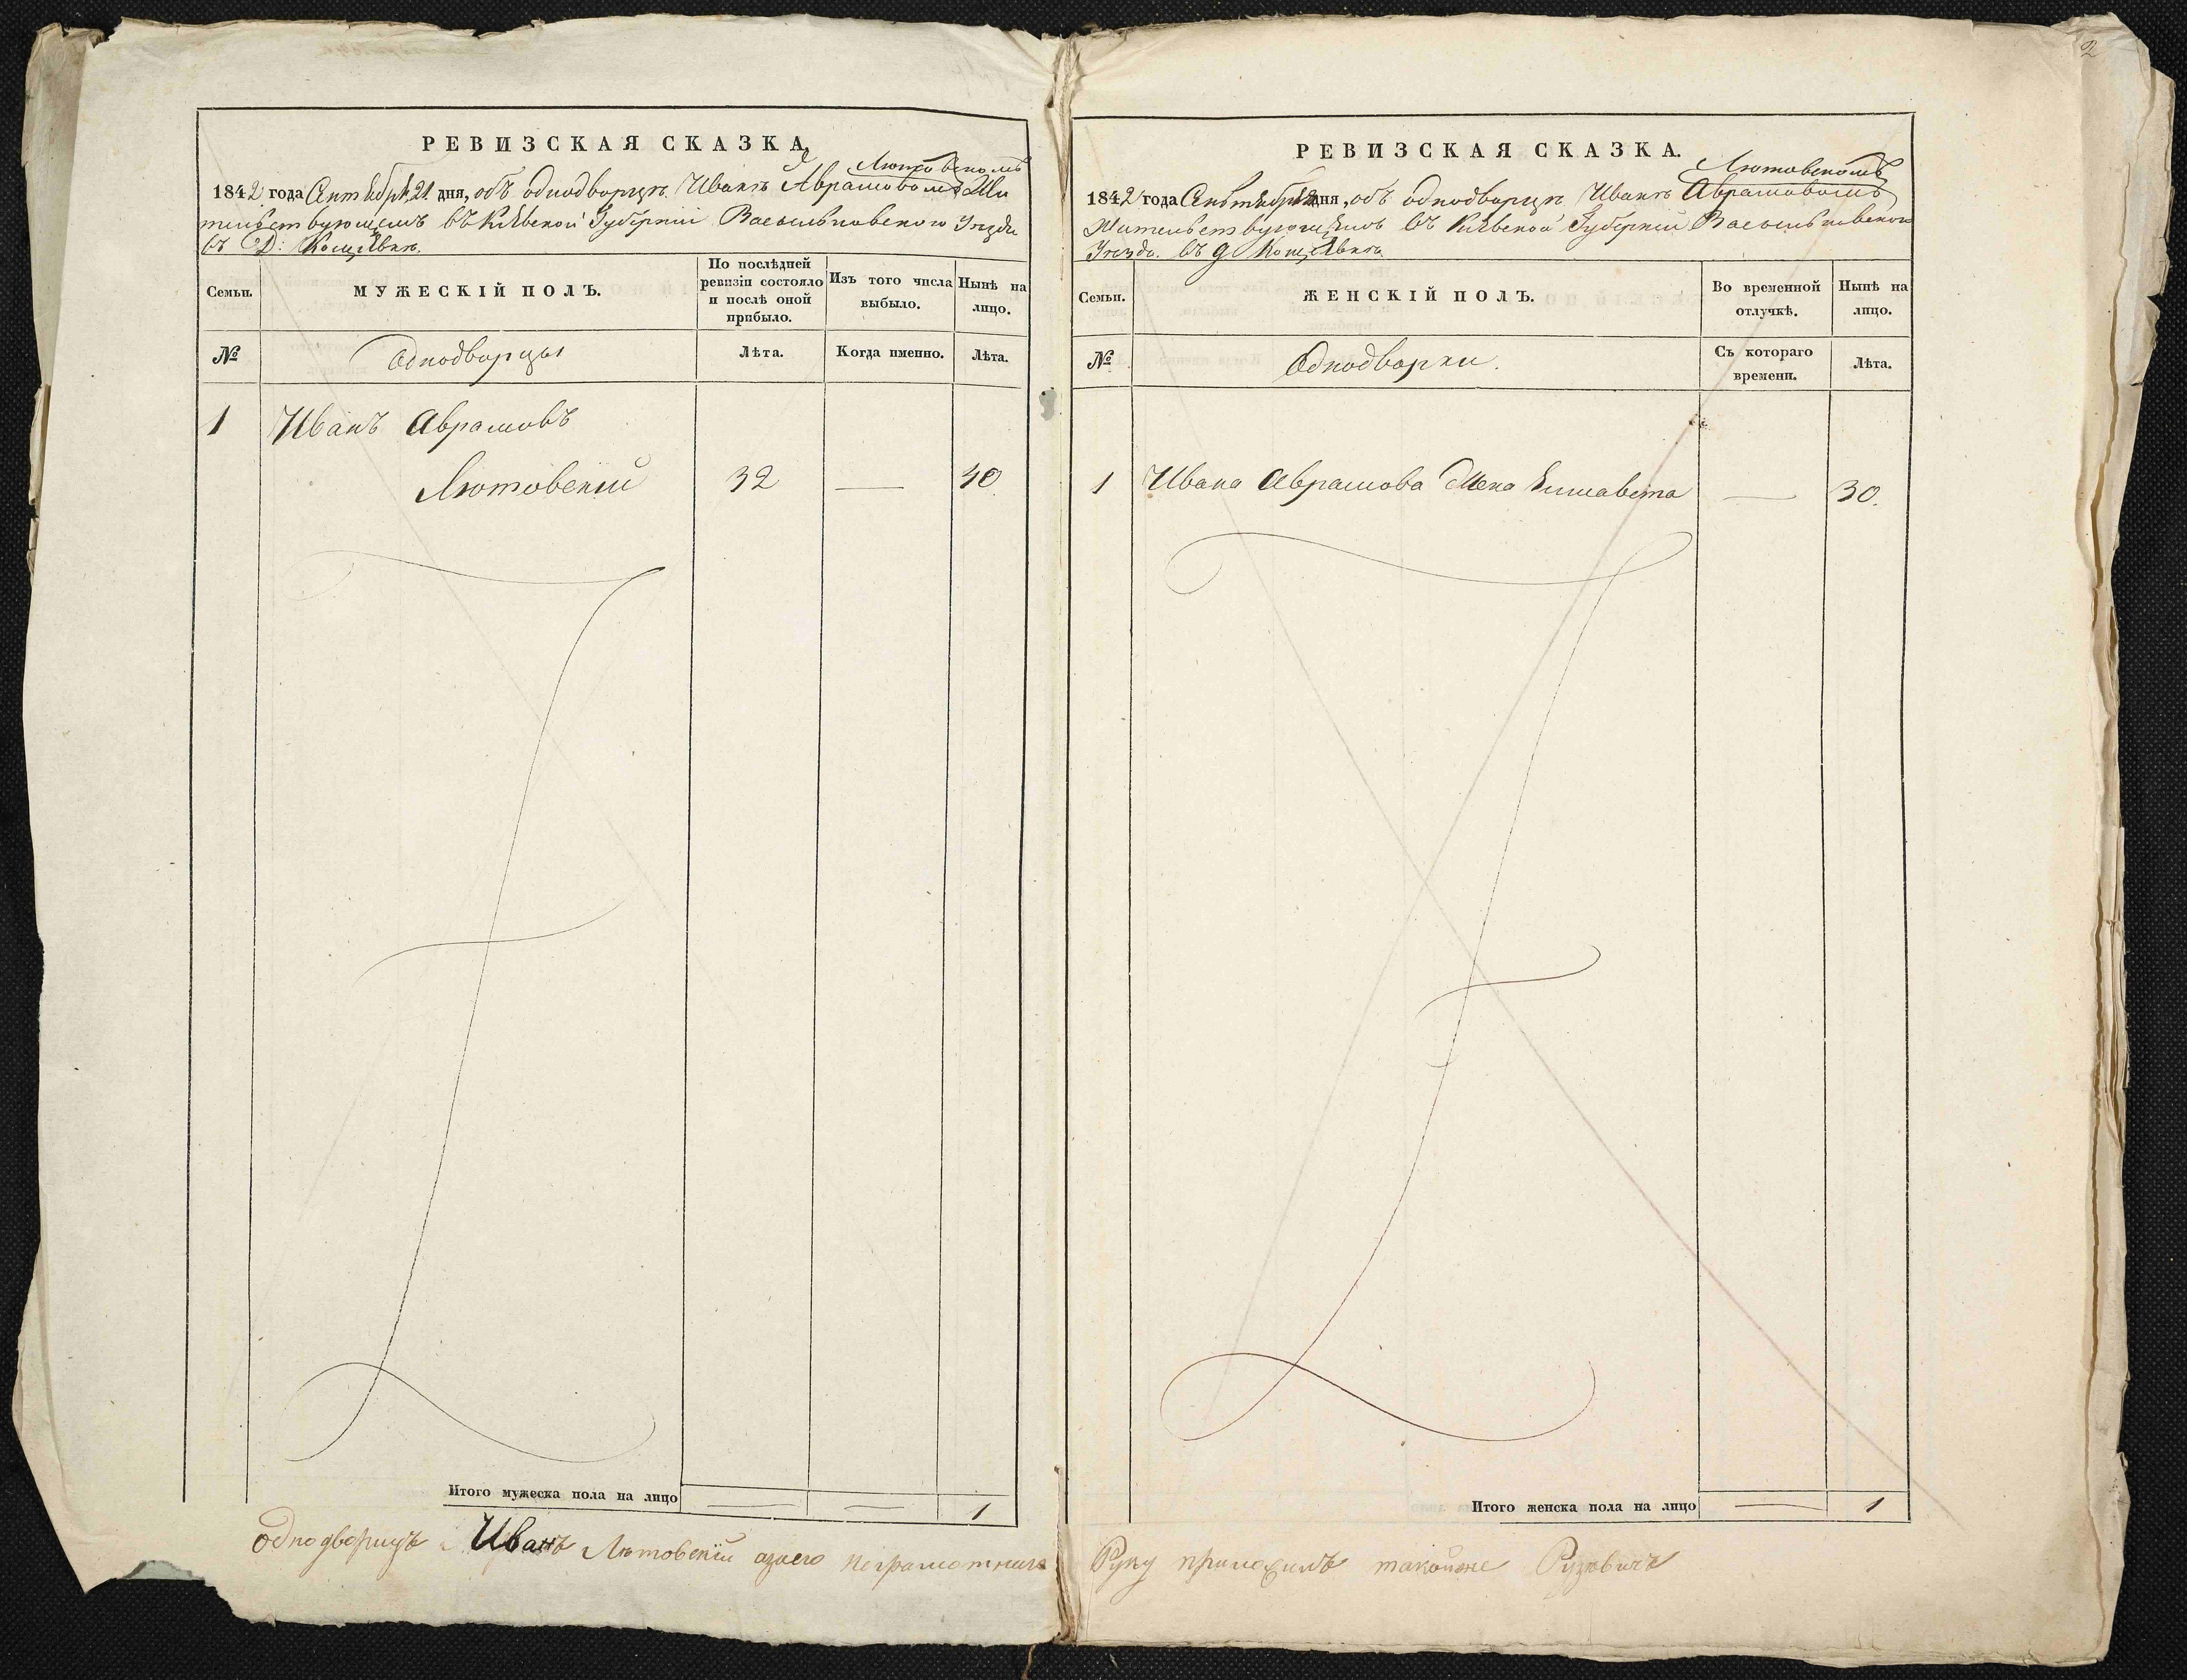 РЕВИЗСКАЯ СКАЗКА,
Лютовскомъ
1842 года Сентября 21 дня, объ однодворцѣ Иванѣ Аврамовомъ Жи
тельствующемъ въ Кіевской Губерніи Васильковского Уезда
въ Д: Кощѣевкѣ.
Семьи.
МУЖЕСКІЙ ПОЛЪ.
По послѣдней ревизіи состояло и послѣ оной прибыло.
Изъ того числа выбыло.
Нынѣ на лицо.
№
Однодворцы
Лѣта.
Когда именно.
Лѣта.
1 Иванъ Аврамовъ
Лютовскій 32 — 40
Итого мужеска пола на лицо — — 1
Однодворецъ Иванъ Лютовскій азаего неграмотнаго
2
РЕВИЗСКАЯ СКАЗКА.
Лютовскомъ
1842 года Сентября дня, объ однодворцѣ Иванѣ Аврамовомъ
Жительствующемъ въ Кіевской Губерніи Васильковского
Уезда. въ д Кощѣевкѣ
Семьи.
ЖЕНСКІЙ ПОЛЪ.
Во временной отлучкѣ.
Нынѣ на лицо.
№
Однодворки.
Съ котораго времени.
Лѣта.
1 Ивана Аврамова Жена Елисавета — 30.
Итого женска пола на лицо — 1
Руку приложилъ такойже